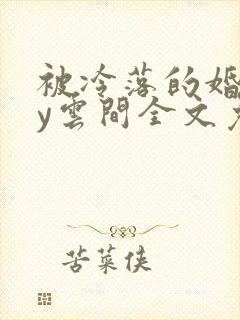 被冷落的婚
y雲間全文
苦菜俠